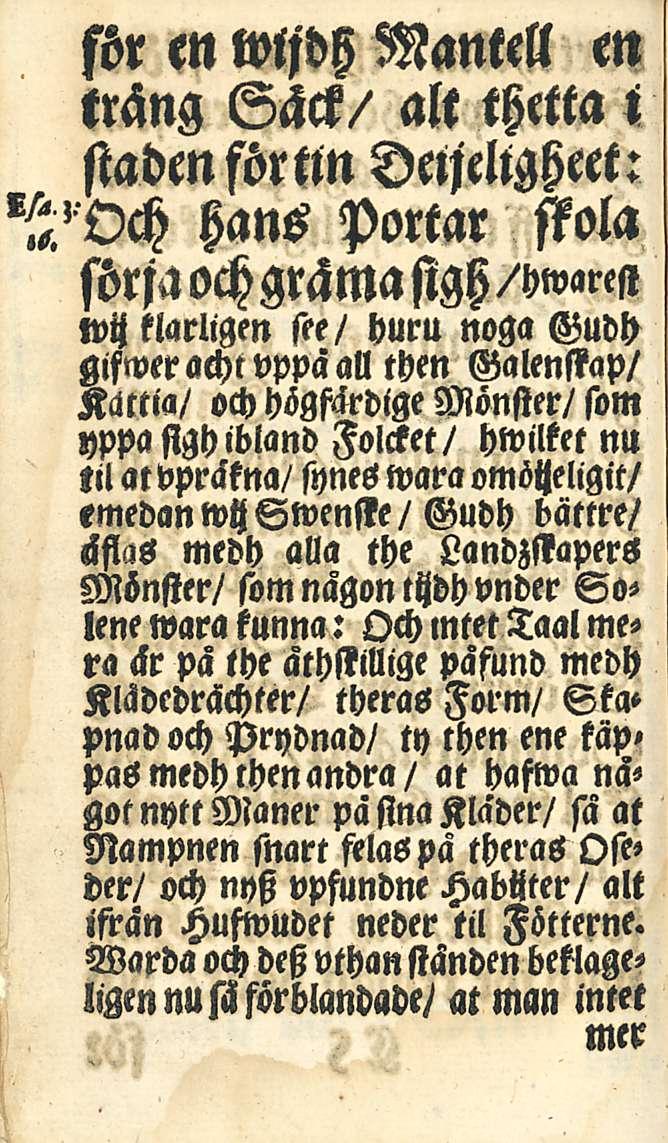 för en wijdh Mantell en
träng Säck/ alt thetta i
staden för tin Deijeligheet:
Esa. 3:
16.
Och hans Portar skola
sörja och gräma sigh /hwarest
wij klarligen see/ huru noga Gudh
gifwer acht vppå all then Galenskap/
Kättia/ och högfärdige Mönster/ som
yppa sigh ibland Folcket/ hwilket nu
til at vpräkna/ synes wara omöijeligit/
emedan wij Swenske/ Gudh bättre/
äflas medh alla the Landzskapers
Mönster/ som någon tijdh vnder So-
lene wara kunna: Och intet Taal me-
ra är på the åthskillige påfund medh
Klädedrächter/ theras Form/ Ska-
pnad och Prydnad/ ty then ene käp-
pas medh then andra/ at hafwa nå-
got nytt Maner på sina Kläder/ så at
Nampnen snart felas på theras Ose-
der/ och nyß vpfundne Habijter/ alt
ifrån Hufwudet neder til Fötterne.
Warda och deß vthan stånden beklage-
ligen nu så förblandade/ at man intet
mer